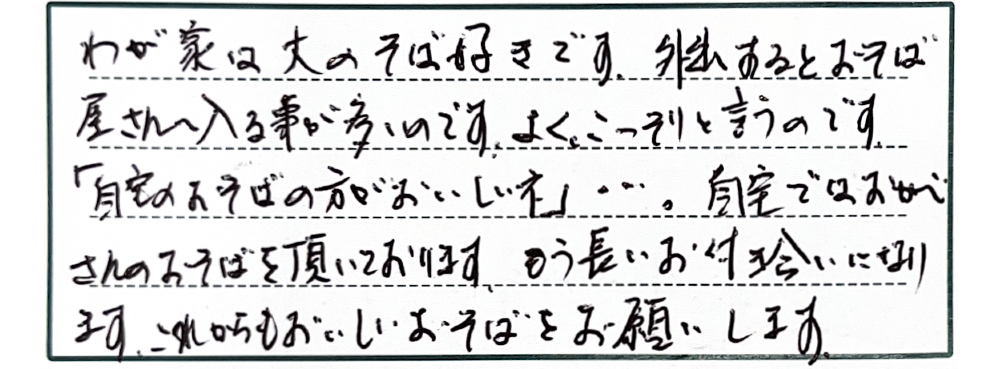 わが家は大のそば好きです。外出するとおそば
屋さんへ入る事が多いのです。よく、こっそりと言うのです。
「自宅のおそばの方がおいしいネ」…。自宅ではおかべ
さんのおそばを頂いております。もう長いお付き合いになり
ます。これからもおいしいおそばをお願いします。